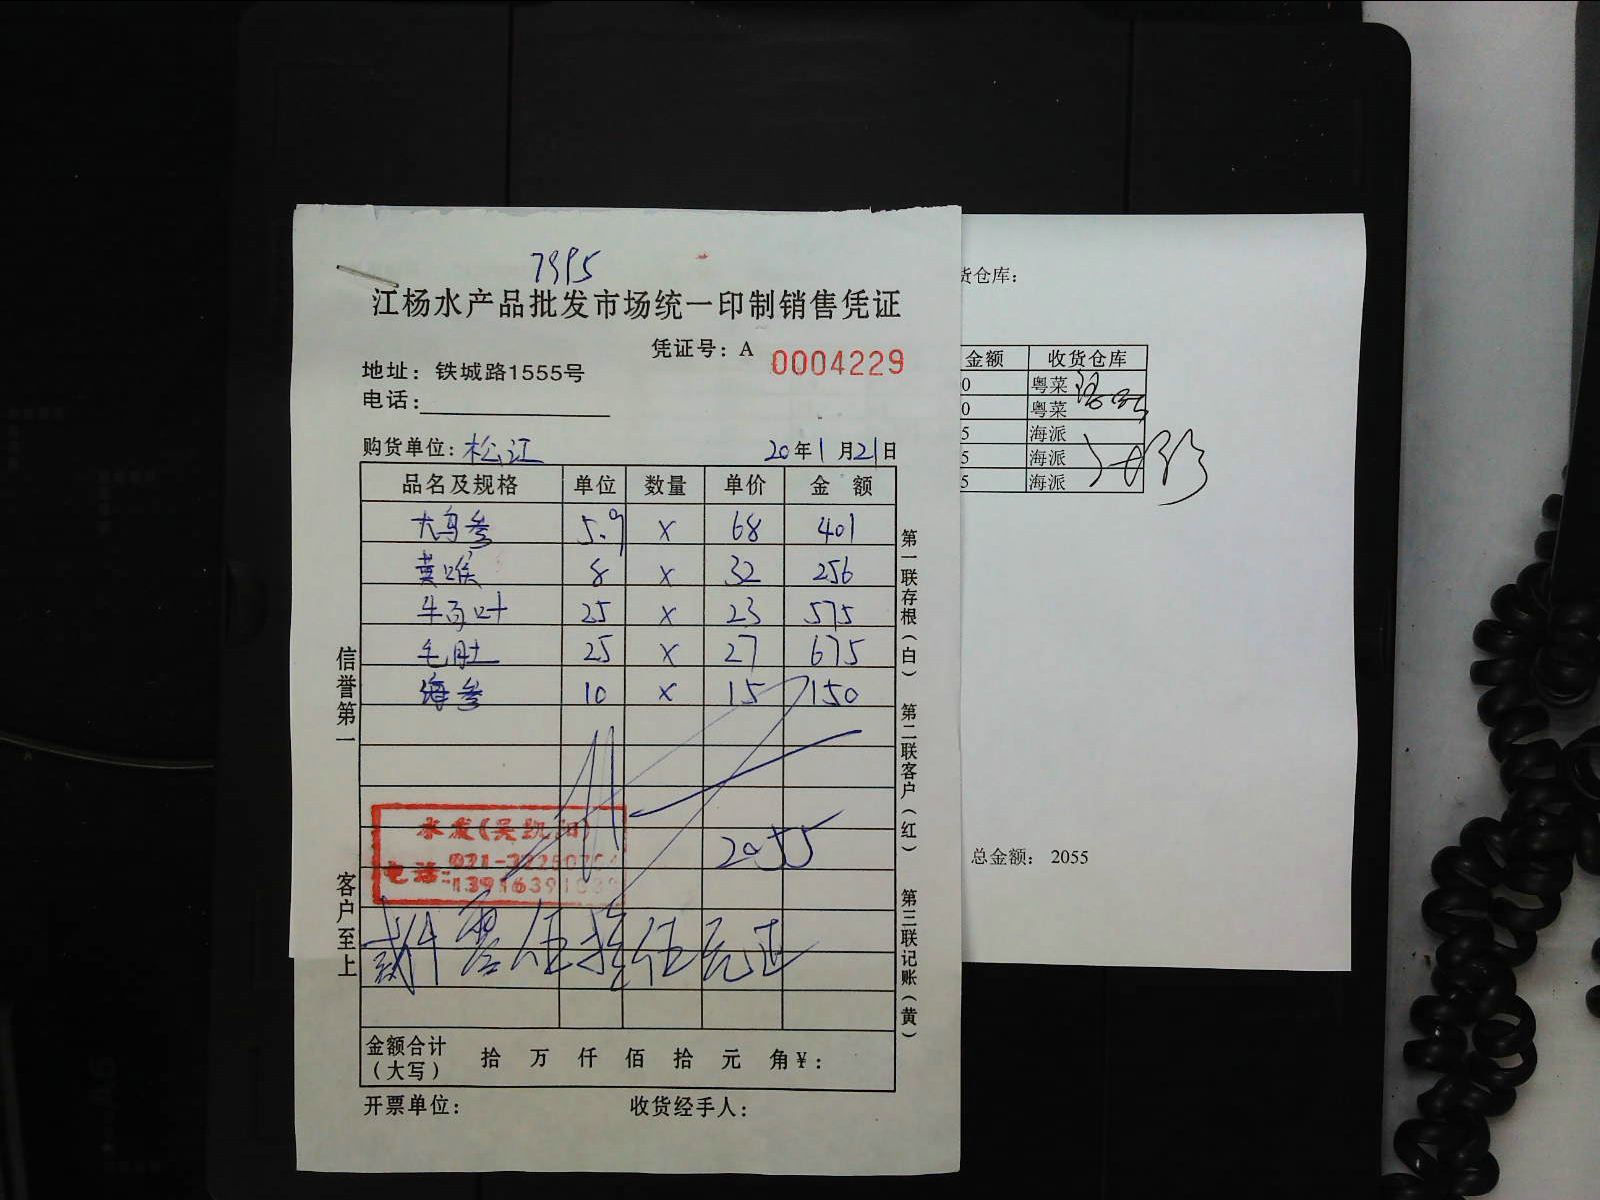 7395
江杨水产品批发市场统一印制销售凭证
凭证号：A 0004229
地址：铁城路1555号
电话：
购货单位：松江 20年1月21日
品名及规格 单位 数量 单价 金额
大乌参 5.9 x 68 401
黄喉 8 x 32 256
牛百叶 25 x 23 575
毛肚 25 x 27 675
海参 10 x 15 150
2055
水发(吴凯阳)
电话:021-
贰仟零伍拾伍元正
金额合计(大写) 拾 万 仟 佰 拾 元 角 ¥：
开票单位： 收货经手人：
信誉第一
客户至上
第一联存根(白)
第二联客户(红)
第三联记账(黄)
货仓库：
金额 收货仓库
0 粤菜
0 粤菜
5 海派
5 海派
5 海派
总金额： 2055